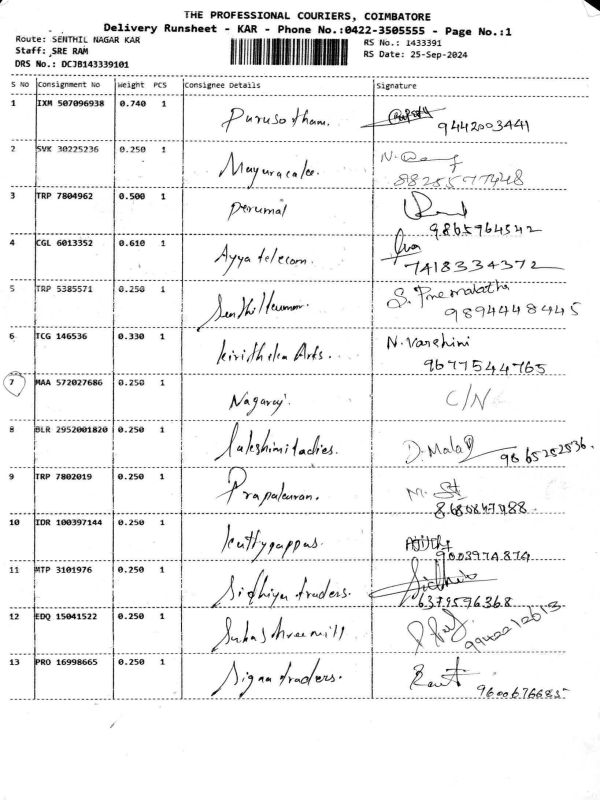 THE PROFESSIONAL COURIERS, COIMBATORE
Delivery Runsheet - KAR - Phone No.:0422-3505555 - Page No.:1
Route: SENTHIL NAGAR KAR RS No.: 1433391
Staff: SRE RAM RS Date: 25-Sep-2024
DRS No.: DCJB143339101
S No Consignment No Weight PCS Consignee Details Signature
1 IXM 507096938 0.740 1 Purusotham. 9442003441
2 SVK 30225236 0.250 1 N. 8825577448
3 TRP 7804962 0.500 1 perumal 9865964542
4 CGL 6013352 0.610 1 Ayya telecom. 7418334372
5 TRP 5385571 0.250 1 Senthilkumar. S. Premalatha
9894448445
6 TCG 146536 0.330 1 kirithika Arts. N. Varshini
9677544765
7 MAA 572027686 0.250 1 Nagaraj. C/N
8 BLR 2952001820 0.250 1 Lakshimi tadies. D. Mala 9865252536.
9 TRP 7802019 0.250 1 Prapakaran. M.
10 IDR 100397144 0.250 1 kuttyyappas. 9003974874
11 MTP 3101976 0.250 1 Sidhiya traders. 6379596368
12 EDQ 15041522 0.250 1
13 PRO 16998665 0.250 1 Signa traders. 9600676685